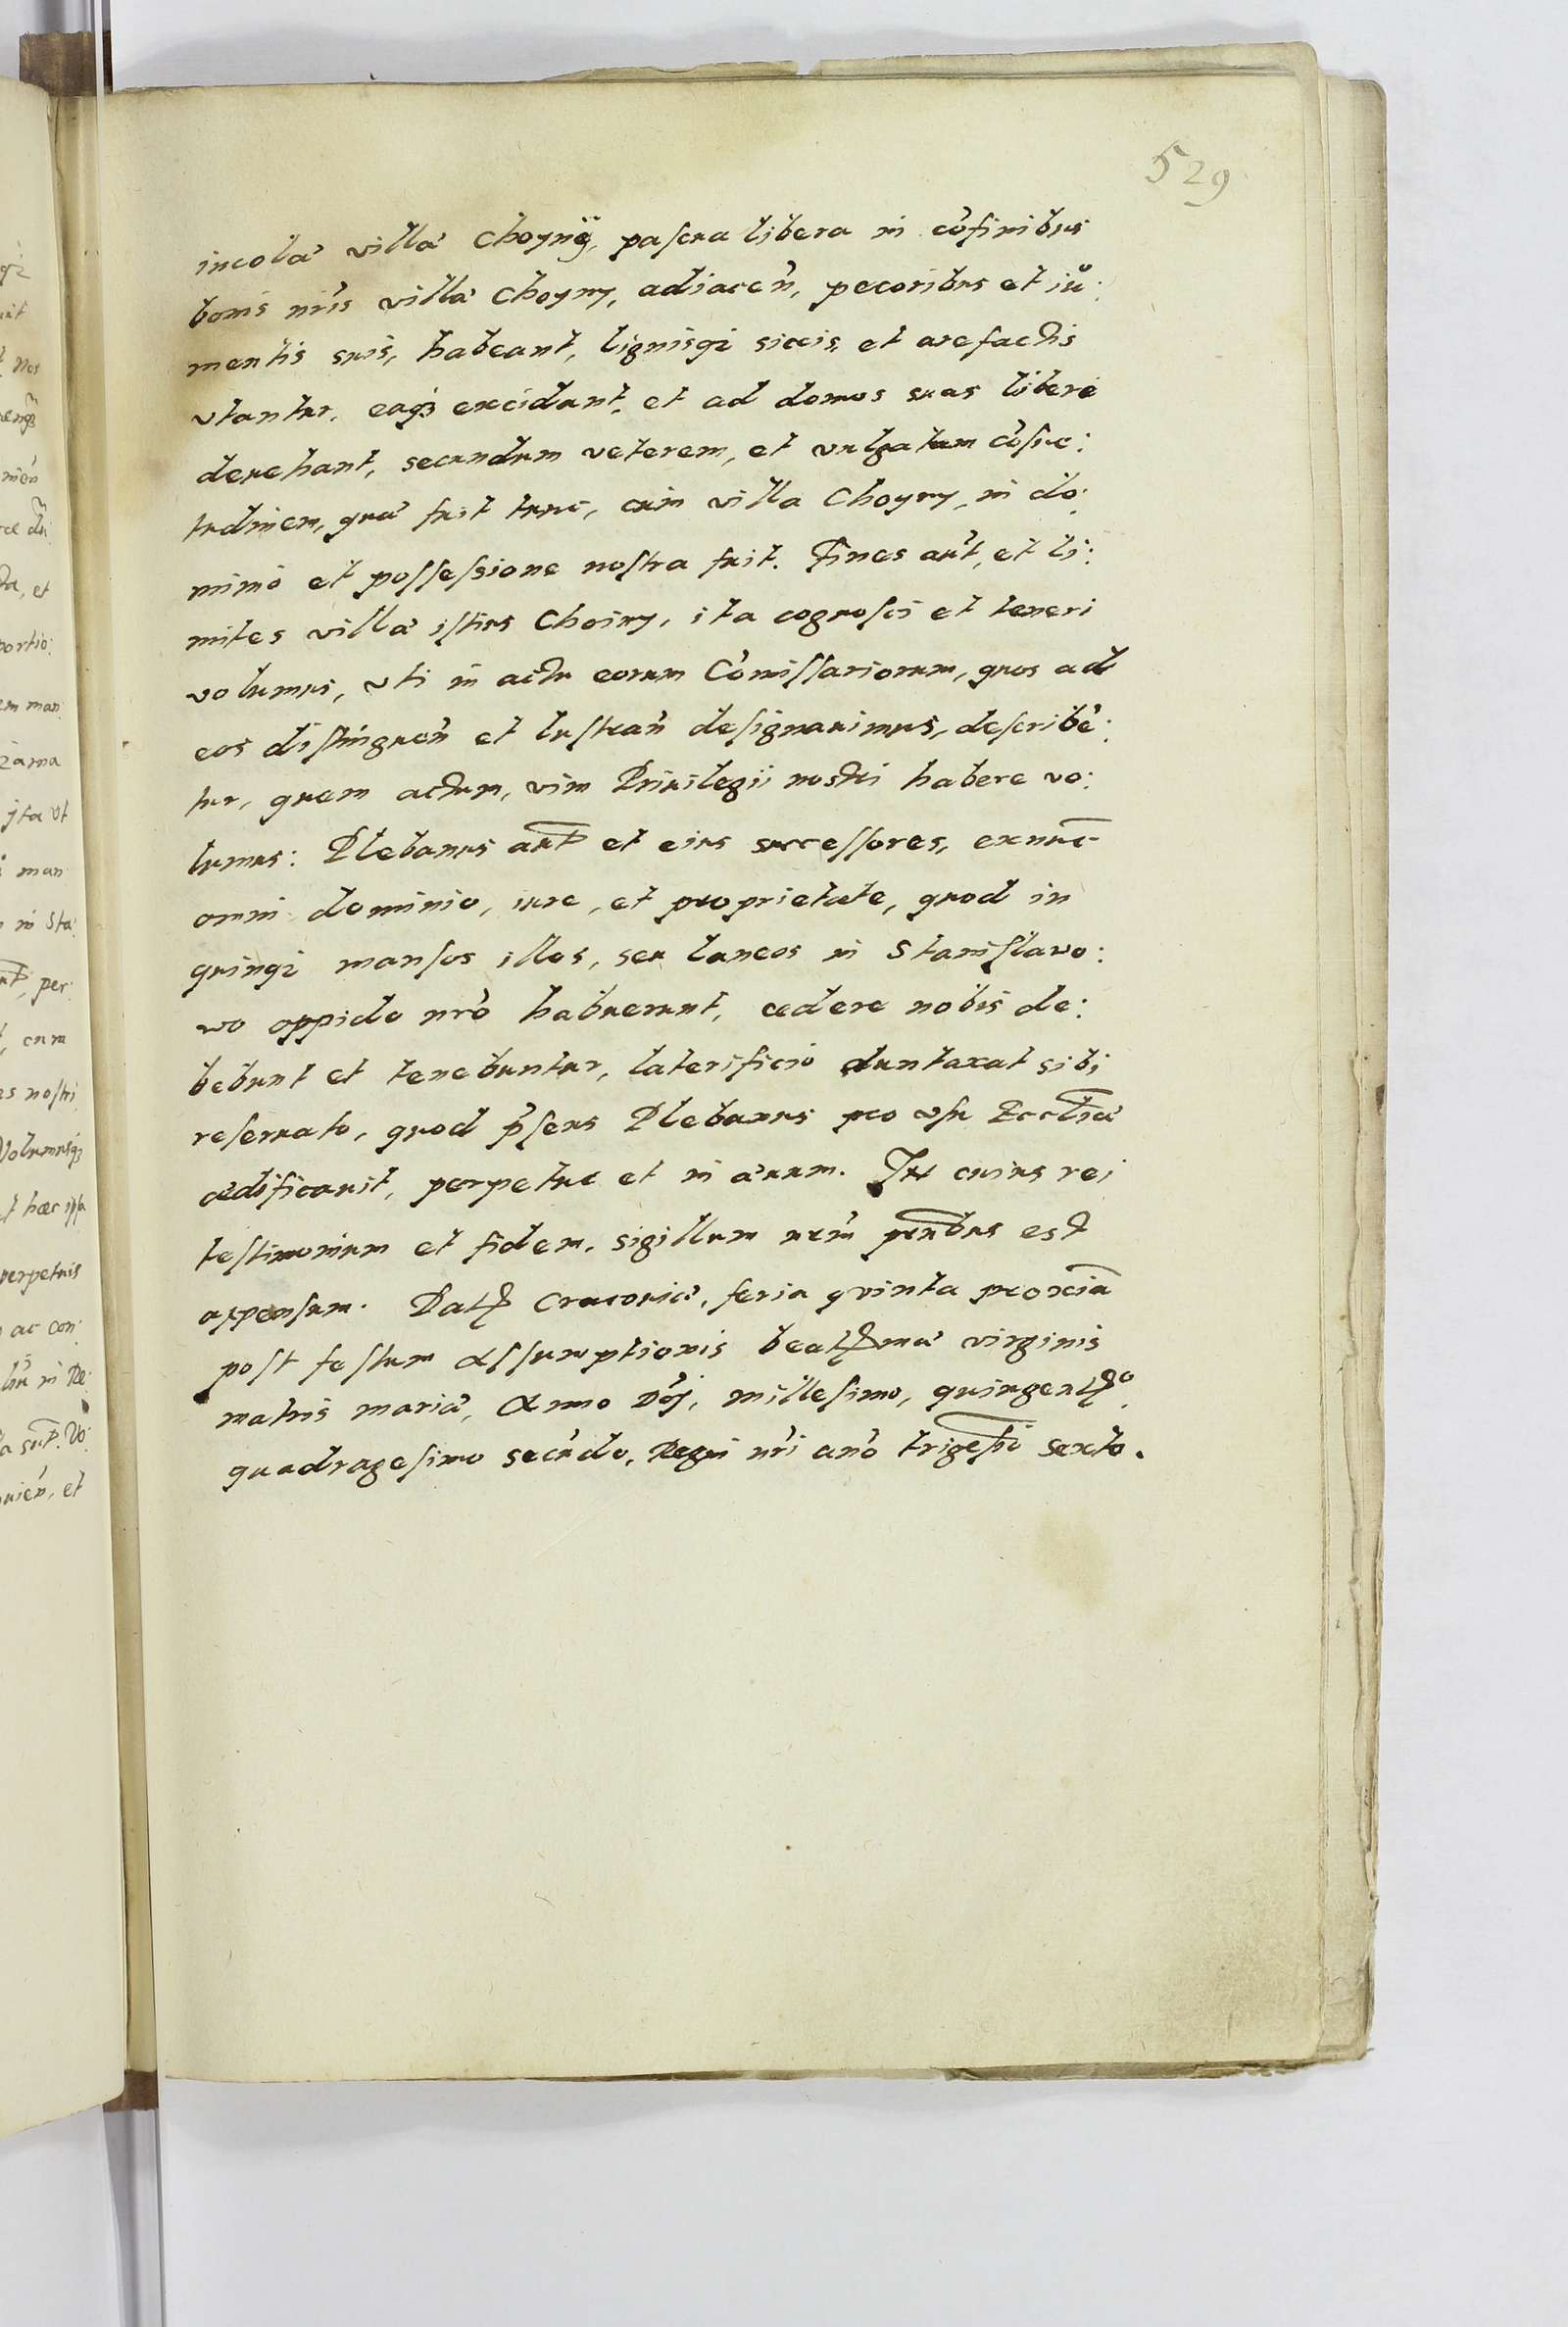 529
incolæ villæ Choynÿ, pascua libera in cõfinibus
bonis nr̃is villæ Choyny, adiacen̄, pecoribus et iŭ:
mentis suis, habeant, lignisq; siccis, et arefactis
vtantur, eaq; excidant, et ad domos suas liberè
deuehant, secundum veterem, et vulgatam cõsue:
tudinem, quæ fuit tunc, cum villa Choyny, in do:
minio et possessione nostra fuit. Fines aut̃, et li:
mites villæ istius Choiny, ita cognosci et teneri
volumus, vti in actu eorum Cõmissariorum, quos ad
eos distinguen̄ et lustran̄ designauimus, describẽ:
tur, quem actum, vim Priuilegii nostri habere vo:
lumus: Plebanus aut̃ et eius successores, exnunc
omni dominio, iure, et proprietate, quod in
quinq; mansos illos, seu laneos in Stanislavo:
wo oppido nr̃o habuerunt, cedere nobis de:
bebunt et tenebuntur, laterificio duntaxat sibi
reseruato, quod p̃sens Plebanus pro vsu Eccl̃iæ
ædificauit, perpetuo et in æuum. In cuius rei
testimonium et fidem, sigillum nr̃m pñtibus est
appensum. Datt Cracouiæ, feria qvinta proxĩa
post festum Assumptionis beattmæ virginis
matris mariæ, Anno Dñj, millesimo, quingentto,
quadragesimo secũdo, Regni nr̃i anõ trigesĩo sexto.